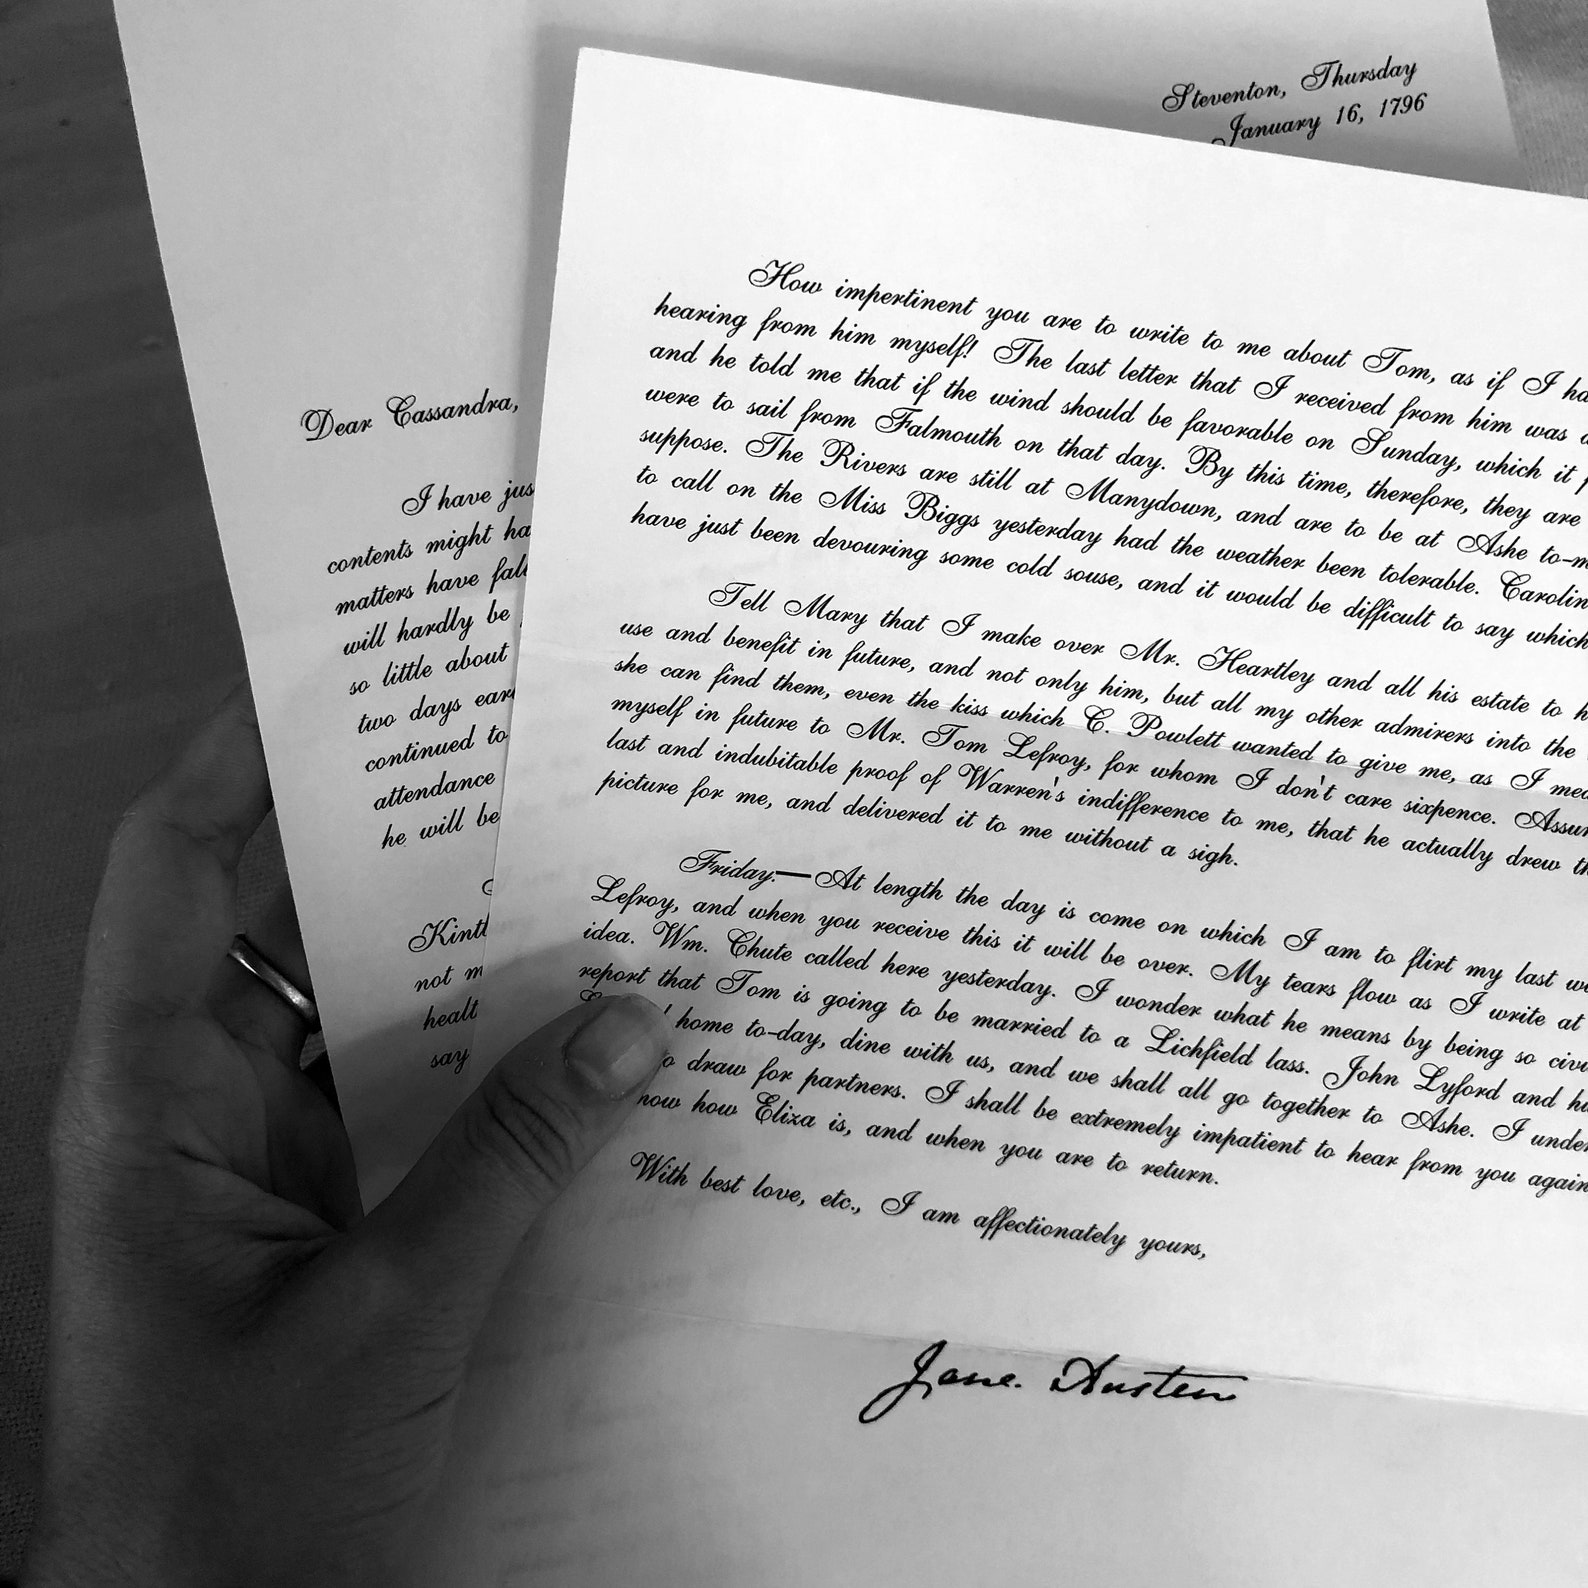 Steventon, Thursday
January 16, 1796
Dear Cassandra,
I have jus
contents might ha
matters have fal
will hardly be
so little about
two days ear
continued to
attendance
he will be
Kint
not m
healt
say
How impertinent you are to write to me about Tom, as if I ha
hearing from him myself! The last letter that I received from him was
and he told me that if the wind should be favorable on Sunday, which it
were to sail from Falmouth on that day. By this time, therefore, they are
suppose. The Rivers are still at Manydown, and are to be at Ashe to-m
to call on the Miss Biggs yesterday had the weather been tolerable. Carolin
have just been devouring some cold souse, and it would be difficult to say which
Tell Mary that I make over Mr. Heartley and all his estate to h
use and benefit in future, and not only him, but all my other admirers into the
she can find them, even the kiss which C. Powlett wanted to give me, as I mea
myself in future to Mr. Tom Lefroy, for whom I don't care sixpence. Assur
last and indubitable proof of Warren's indifference to me, that he actually drew th
picture for me, and delivered it to me without a sigh.
Friday.—At length the day is come on which I am to flirt my last w
Lefroy, and when you receive this it will be over. My tears flow as I write at
idea. Wm. Chute called here yesterday. I wonder what he means by being so civi
report that Tom is going to be married to a Lichfield lass. John Lyford and hi
home to-day, dine with us, and we shall all go together to Ashe. I under
o draw for partners. I shall be extremely impatient to hear from you again
now how Eliza is, and when you are to return.
With best love, etc., I am affectionately yours,
Jane Austen